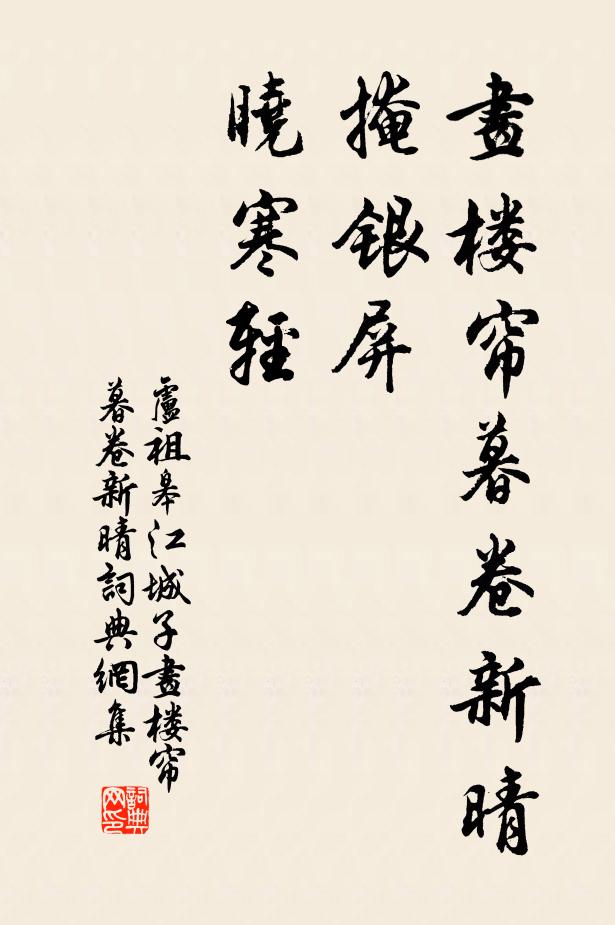 畫楼帘暮卷新晴
掩銀屏
曉寒輕
盧祖皋江城子畫楼帘
暮卷新晴詞典網集
詞典
网印